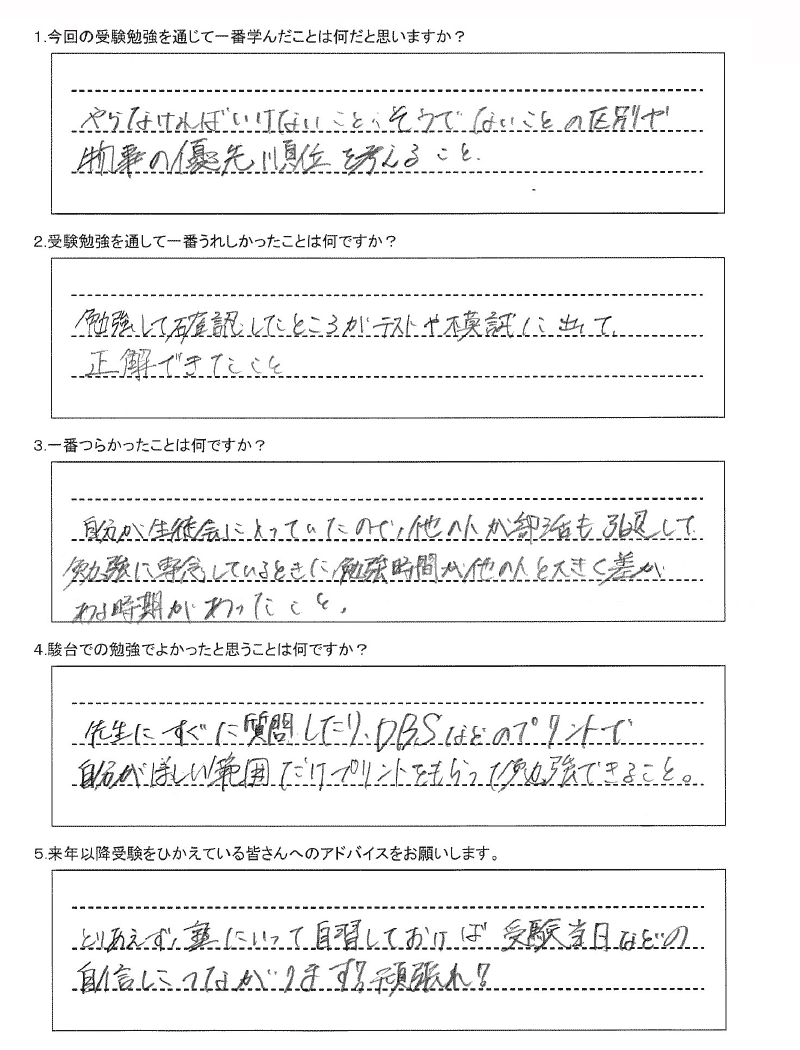 1.今回の受験勉強を通じて一番学んだことは何だと思いますか？
やらなければいけないこと、そうでないことの区別や
物事の優先順位を考えること.
2.受験勉強を通して一番うれしかったことは何ですか？
勉強して確認したところがテストや模試に出て、
正解できたこと
3.一番つらかったことは何ですか？
自分が生徒会に入っていたので、他の人が部活も引退して
勉強に専念しているときに勉強時間が他の人と大きく差が
ある時期があったこと.
4.駿台での勉強でよかったと思うことは何ですか？
先生にすぐに質問したり、DBSなどのプリントで
自分がほしい範囲だけプリントをもらって勉強できること。
5.来年以降受験をひかえている皆さんへのアドバイスをお願いします。
とりあえず、塾にいって自習しておけば受験当日などの
自信につながります！頑張れ！